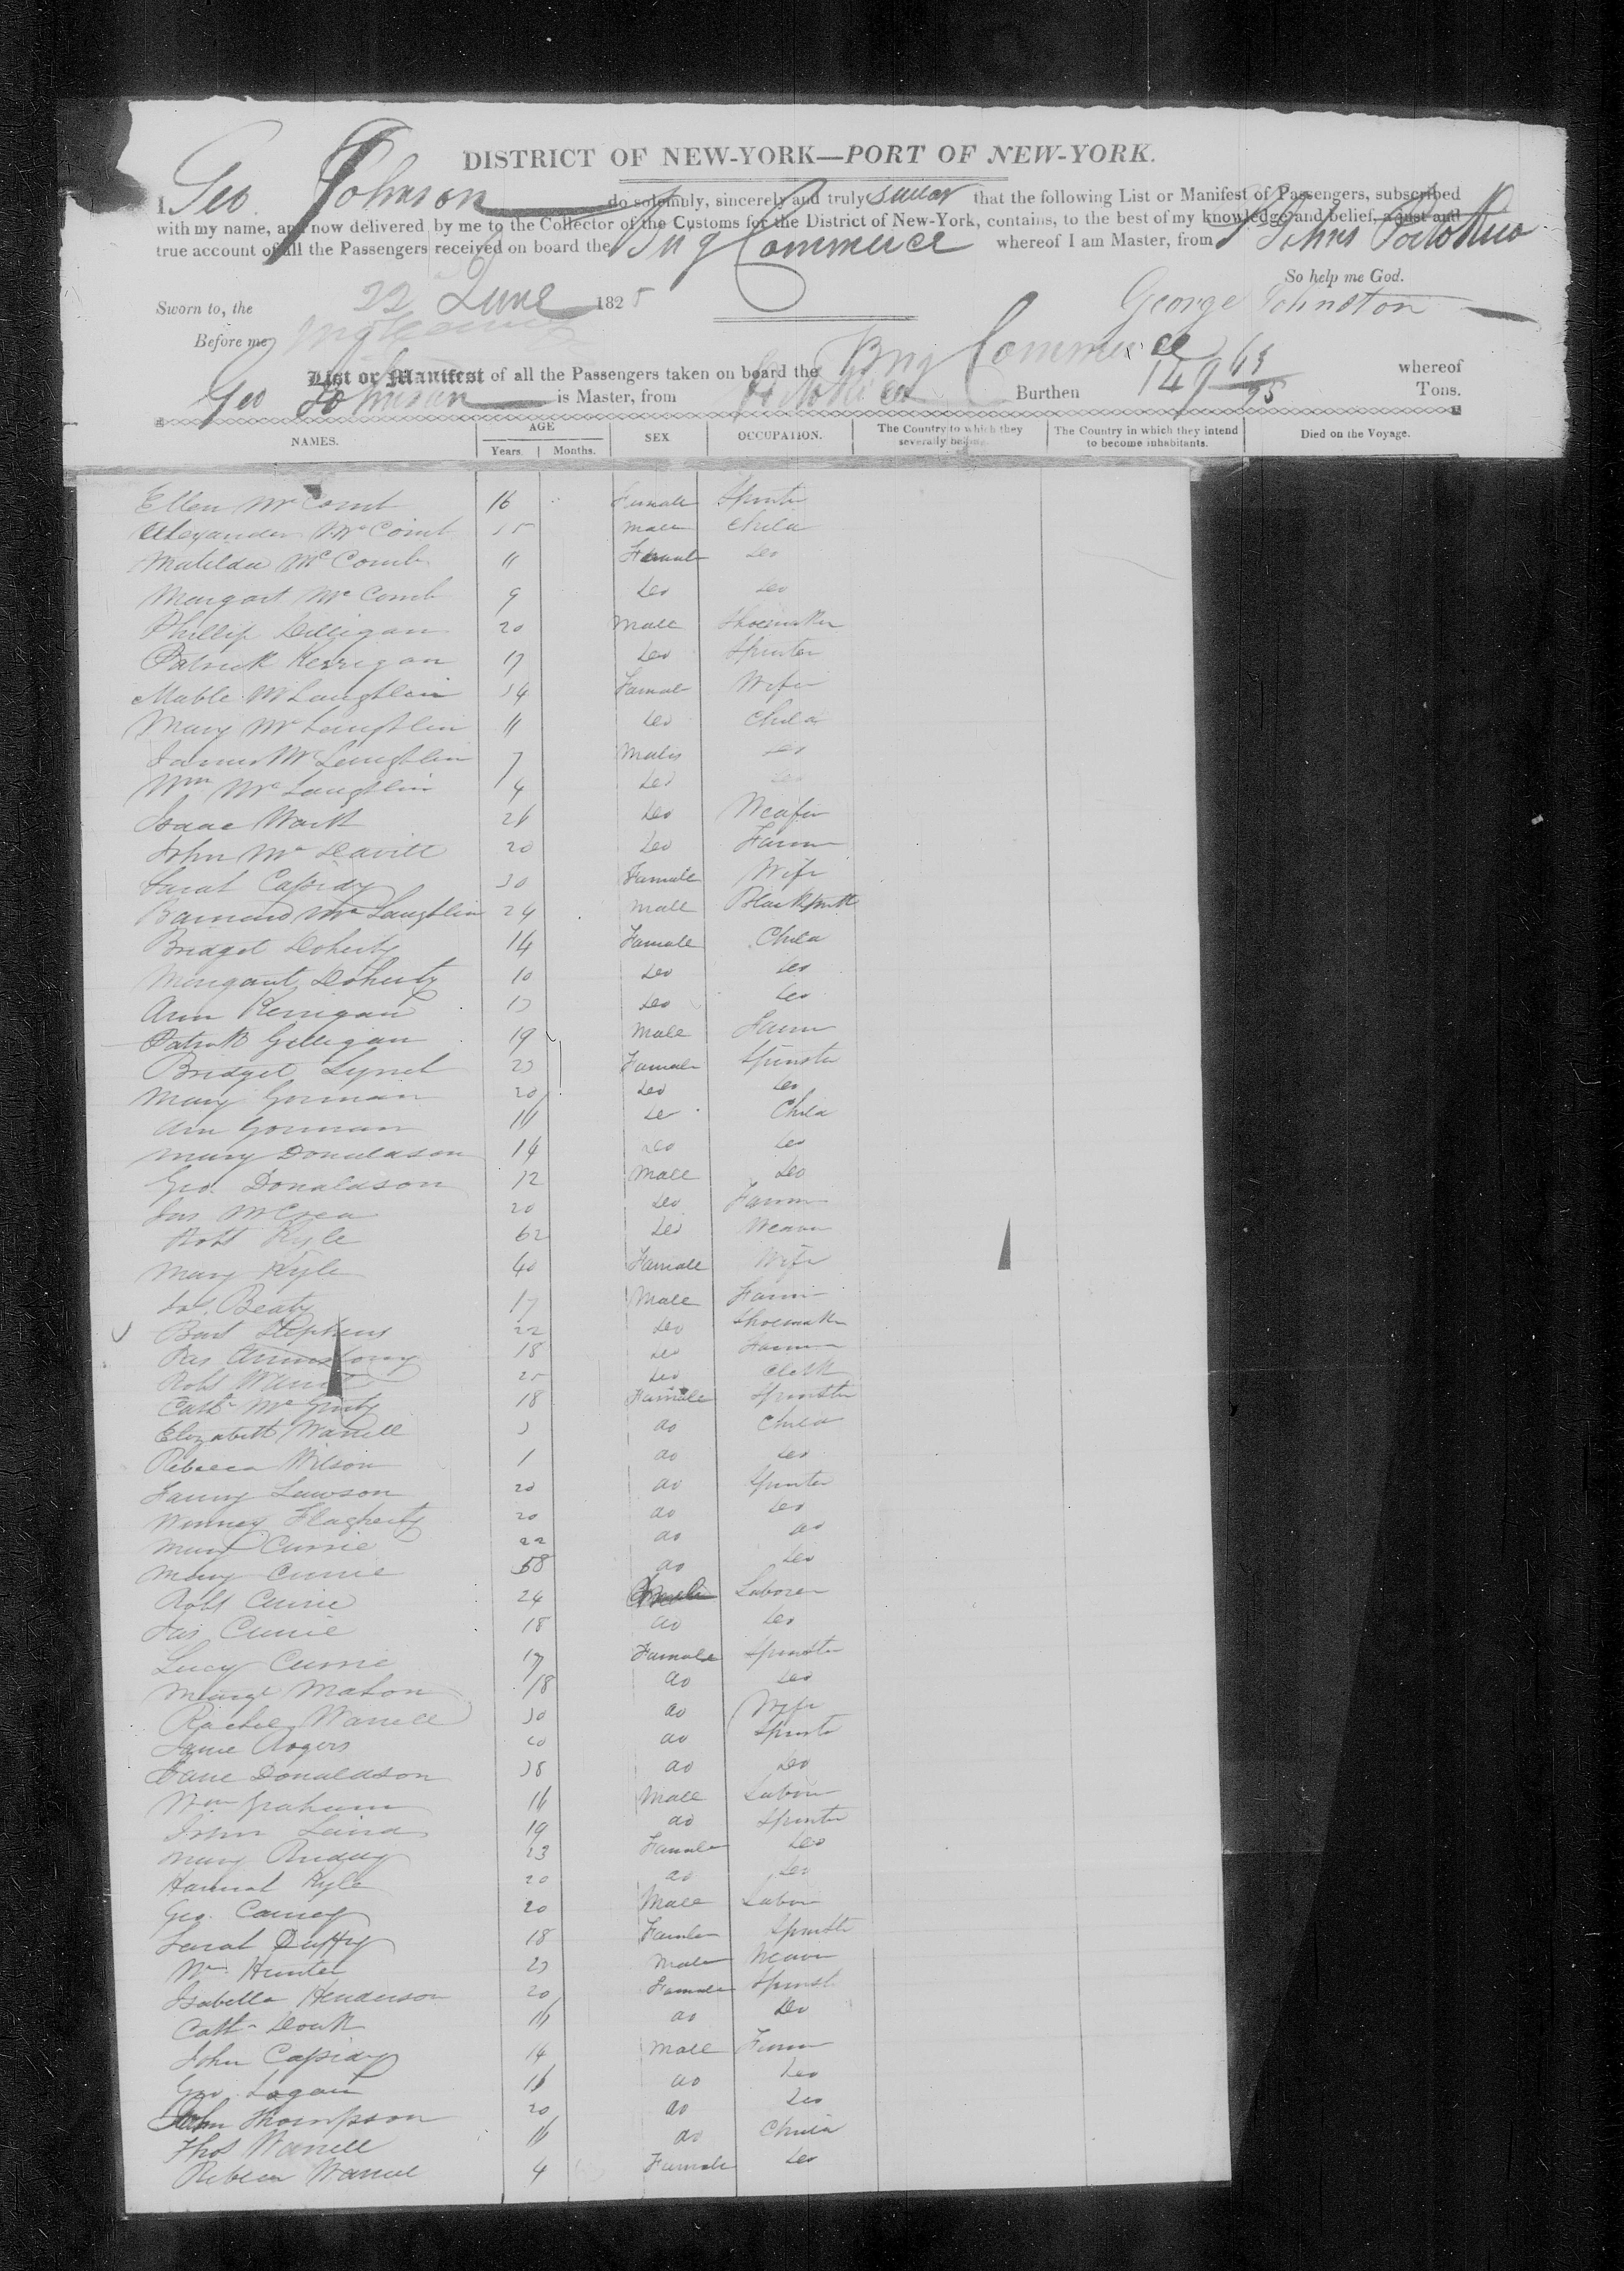 DISTRICT OF NEW-YORK—PORT OF NEW-YORK.
I, Geo. Johnson do solemnly, sincerely and truly swear that the following List or Manifest of Passengers, subscribed
with my name, and now delivered by me to the Collector of the Customs for the District of New-York, contains, to the best of my knowledge and belief, a just and
true account of all the Passengers received on board the Brig Commerce whereof I am Master, from St Johns Porto Rico
So help me God.
Sworn to, the 22 June 1825 George Johnston
Before me,
List or Manifest of all the Passengers taken on board the Brig Commerce whereof
Geo Johnson is Master, from Porto Rico Burthen 149 Tons.
NAMES. AGE Years. Months. SEX OCCUPATION. The Country to which they severally belong. The Country in which they intend to become inhabitants. Died on the Voyage.
Ellen McComb 16 Female Spinster
Alexander McComb 15 Male Child
Matilda McComb 11 Female Do
Margart McComb 9 Do Do
Phillip Dilligan 20 Male Shoemaker
Patrick Kerrigan 17 Do Spinster
Mable McLaughlin 34 Famal Wife
Mary McLaughlin 11 Do Child
James McLaughlin 7 Male Do
Wm McLaughlin 4 Do Do
Isaac Wark 26 Do
John McDavitt 20 Do Farm
Sarah Cassidy 30 Famale Wife
Barnard McLaughlin 24 Male Blacksmith
Bridget Doherty 14 Famale Child
Margaret Doherty 10 Do Do
Ann Kerrigan 13 Do Do
Patrick Gilligan 19 Male Farm
Bridget Lynch 23 Famale Spinster
Mary Gorman 20 Do Do
Ann Gorman 11 Do Child
Mary Donaldson 14 Do Do
Geo. Donaldson 12 Male Do
Jas McCrea 20 Do Farm
Robt Kyle 62 Do Weaver
Mary Kyle 40 Famale Wife
Jas. Beaty 17 Male Farm
Stephens 22 Do Shoemaker
Jas Armstrong 18 Do Farm
Robt 25 Do Clerk
Cath McGinty 18 Famale Spinster
Elizabeth Warrell 3 do Child
Rebecca Wilson 1 do Do
Fanny Lawson 20 do Spinster
Winney Flagherty 20 do Do
Mary Currie 22 do do
Mary Currie 58 do Do
Robt Currie 24 Male Laborer
Jas Currie 18 do Do
Lucy Currie 17 Famale Spinster
Margt Maton 18 do Do
Rachel Warrell 30 do Wife
Jane Rogers 20 do Spinster
Jane Donaldson 38 do Do
Wm Graham 16 Male Labor
John Laird 19 do Spinster
Mary 23 Famale Do
Hannah Kyle 20 do Do
Geo. Carney 20 Male Labor
Sarah Duffy 18 Famale Spinster
Wm Hunter 23 Male Weaver
Isabella Henderson 20 Famale Spinst
Cath Doak 16 do Do
John Cassidy 14 Male Farm
Geo. Logan 16 do Do
John Thompson 20 do Do
Thos Warrell 16 do Child
Rebecca Warrell 4 Famale Do